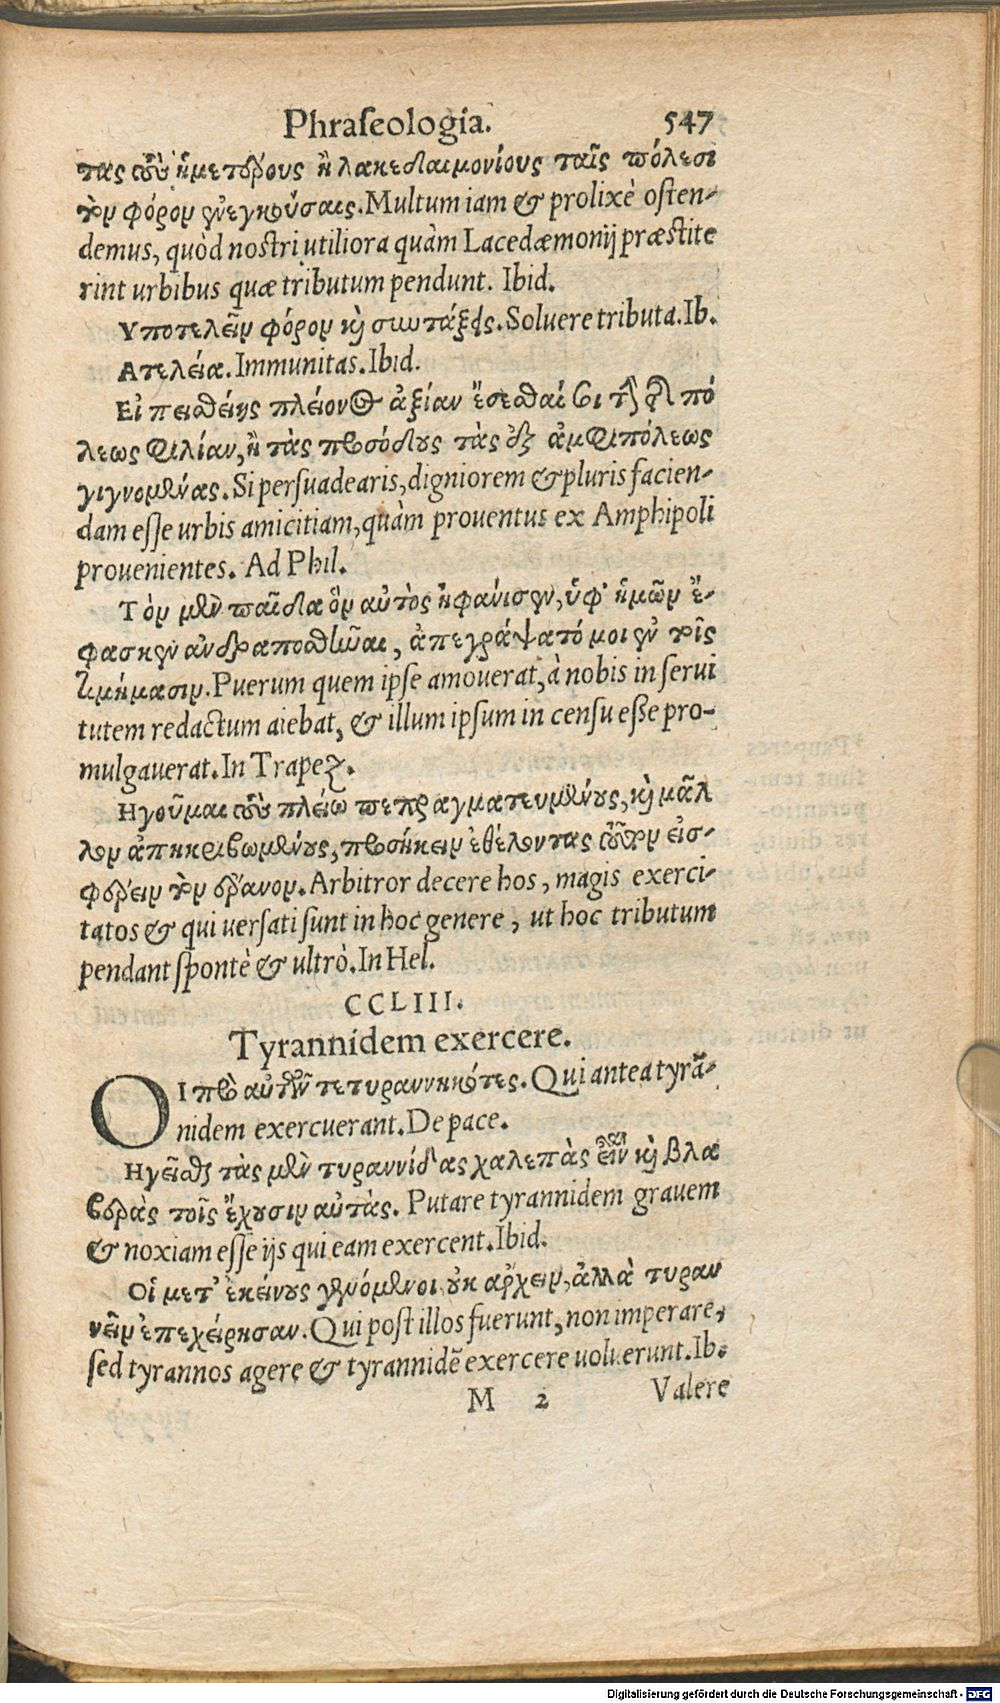 Phraſeologia. 547
τας τοὺς ἡμετέρους ἢ λακεδαιμονίους ταῖς πόλεσι
τὸν φόρον ἐνεγκούσαις. Multum iam & prolixè oſten-
demus, quòd noſtri utiliora quàm Lacedæmonij præſtite
rint urbibus quæ tributum pendunt. Ibid.
Υποτελεῖν φόρον καὶ συντάξεις. Soluere tributa. Ib.
Ατελεία. Immunitas. Ibid.
Εἰ πεισθείης πλείονος ἀξίαν ἔσεσθαί σοι τὴν τῆς πό
λεως φιλίαν, ἢ τὰς προσόδους τὰς ἐξ ἀμφιπόλεως
γιγνομένας. Si perſuadearis, digniorem & pluris facien-
dam eſſe urbis amicitiam, quàm prouentus ex Amphipoli
prouenientes. Ad Phil.
Τὸν μὲν παῖδα ὃν αὐτὸς ἠφάνισεν, ὑφ' ἡμῶν ἔ-
φασκεν ἀνδραποδισθῆναι, ἀπεγράψατό μοι ἐν τοῖς
τιμήμασιν. Puerum quem ipſe amouerat, à nobis in ſerui
tutem redactum aiebat, & illum ipſum in cenſu eſſe pro-
mulgauerat. In Trapez.
Ηγοῦμαι τοὺς πλείω πεπραγματευμένους, καὶ μᾶλ
λον ἀπηκριβωμένους, προσήκειν ἐθέλοντας τοῦτον εἰσ-
φέρειν τὸν ἔρανον. Arbitror decere hos, magis exerci-
tatos & qui uerſati ſunt in hoc genere, ut hoc tributum
pendant ſpontè & ultrò. In Hel.
CCLIII.
Tyrannidem exercere.
ΟΙ πρὸ αὐτῶν τετυραννηκότες. Qui antea tyrã-
nidem exercuerant. De pace.
Ηγεῖσθαι τὰς μὲν τυραννίδας χαλεπὰς εἶναι καὶ βλα
βερὰς τοῖς ἔχουσιν αὐτὰς. Putare tyrannidem grauem
& noxiam eſſe ijs qui eam exercent. Ibid.
Οἱ μετ' ἐκείνους γενόμενοι, οὐκ ἄρχειν, ἀλλὰ τυραν
νεῖν ἐπεχείρησαν. Qui poſt illos fuerunt, non imperare,
ſed tyrannos agere & tyrannidẽ exercere uoluerunt. Ib.
M 2 Valere
Digitalisierung gefördert durch die Deutsche Forschungsgemeinschaft - DFG